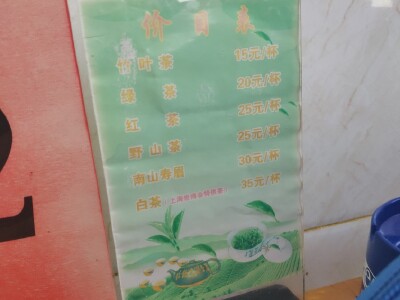 价目表
竹叶茶 15元/杯
绿茶 20元/杯
红茶 25元/杯
野山茶 25元/杯
南山寿眉 30元/杯
白茶 35元/杯